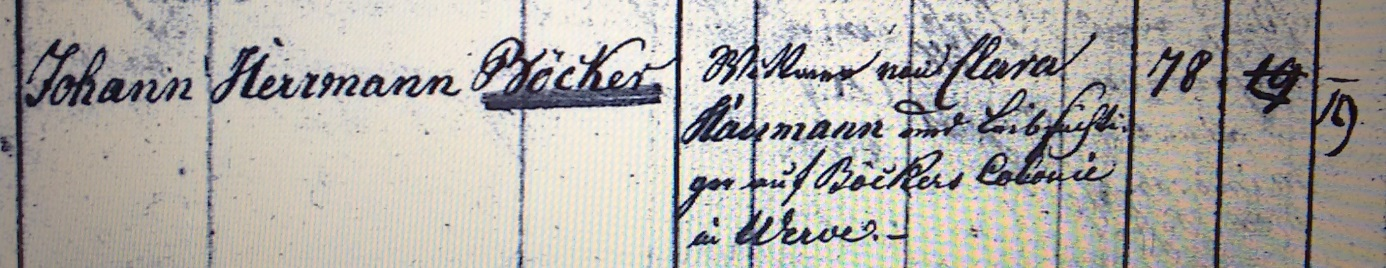 Johann Herrmann Böcker Wittwer von Clara 78 –
Kaumann und Leibzüchti- 19
ger auf Böckers Colonie
in Werve.–